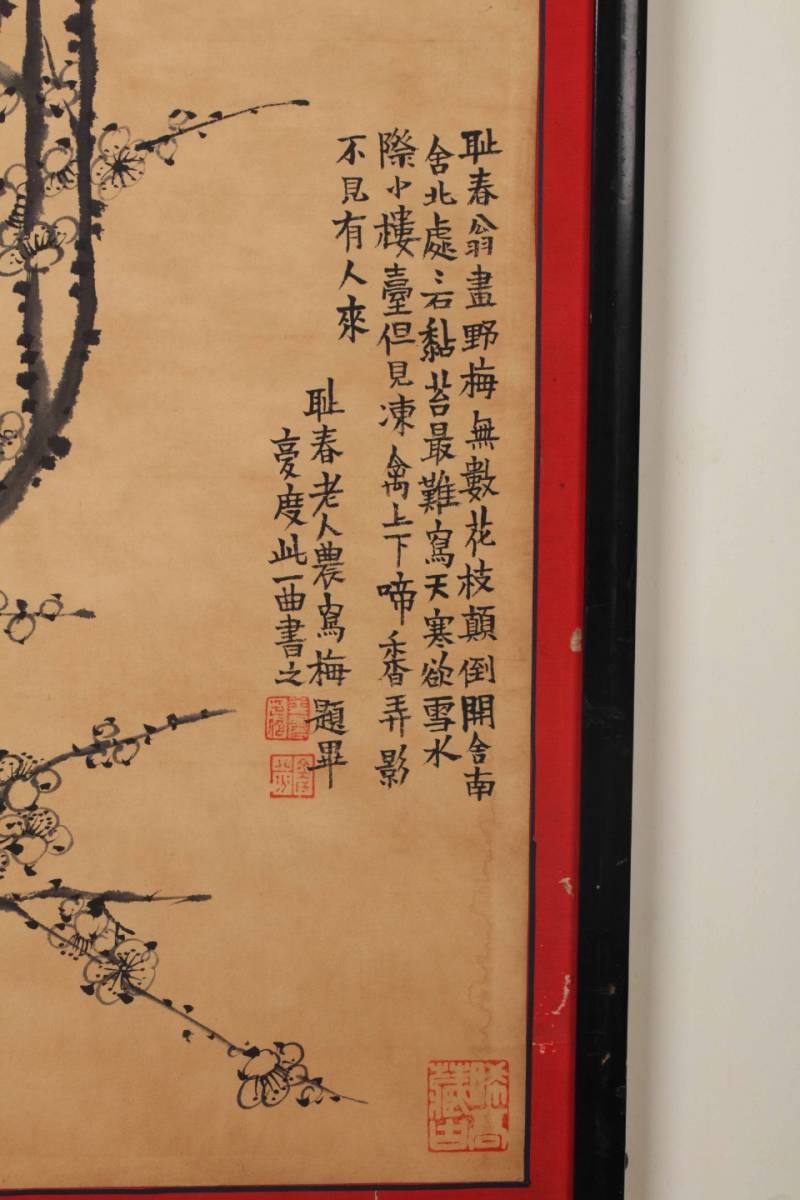 耻春翁畫野梅無數花枝顛倒開舍南
舍北處〻石黏苔最難寫天寒欲雪水
際小樓臺但見凍禽上下啼香弄影
不見有人來
耻春老人農寫梅題畢
憂度此一曲書之